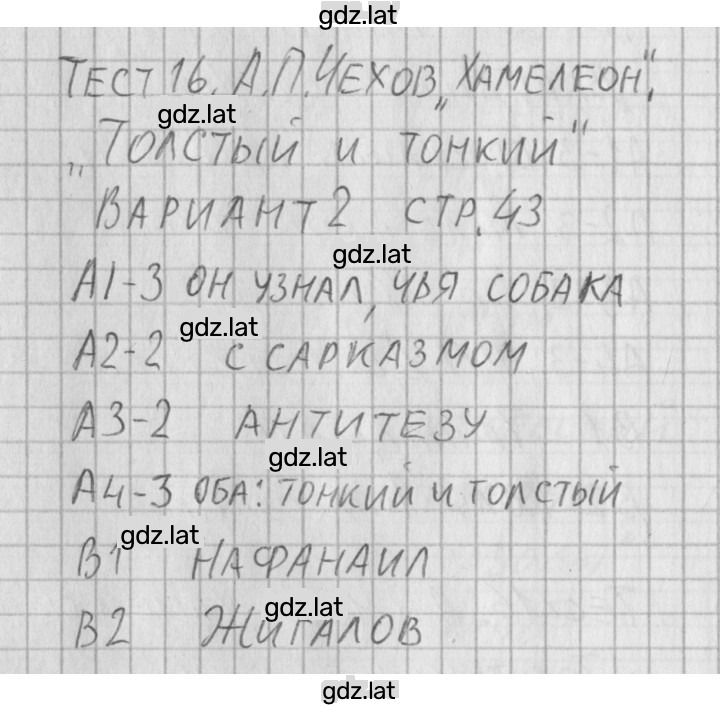 gdz.lat
ТЕСТ 16. А.П.ЧЕХОВ „ХАМЕЛЕОН",
gdz.lat
„ТОЛСТЫЙ И ТОНКИЙ"
ВАРИАНТ 2 СТР. 43
gdz.lat
А1-3 ОН УЗНАЛ, ЧЬЯ СОБАКА
gdz.lat
А2-2 С САРКАЗМОМ
А3-2 АНТИТЕЗУ
gdz.lat
А4-3 ОБА: ТОНКИЙ И ТОЛСТЫЙ
gdz.lat
В1 НАФАНАИЛ
gdz.lat
В2 ЖИГАЛОВ
gdz.lat